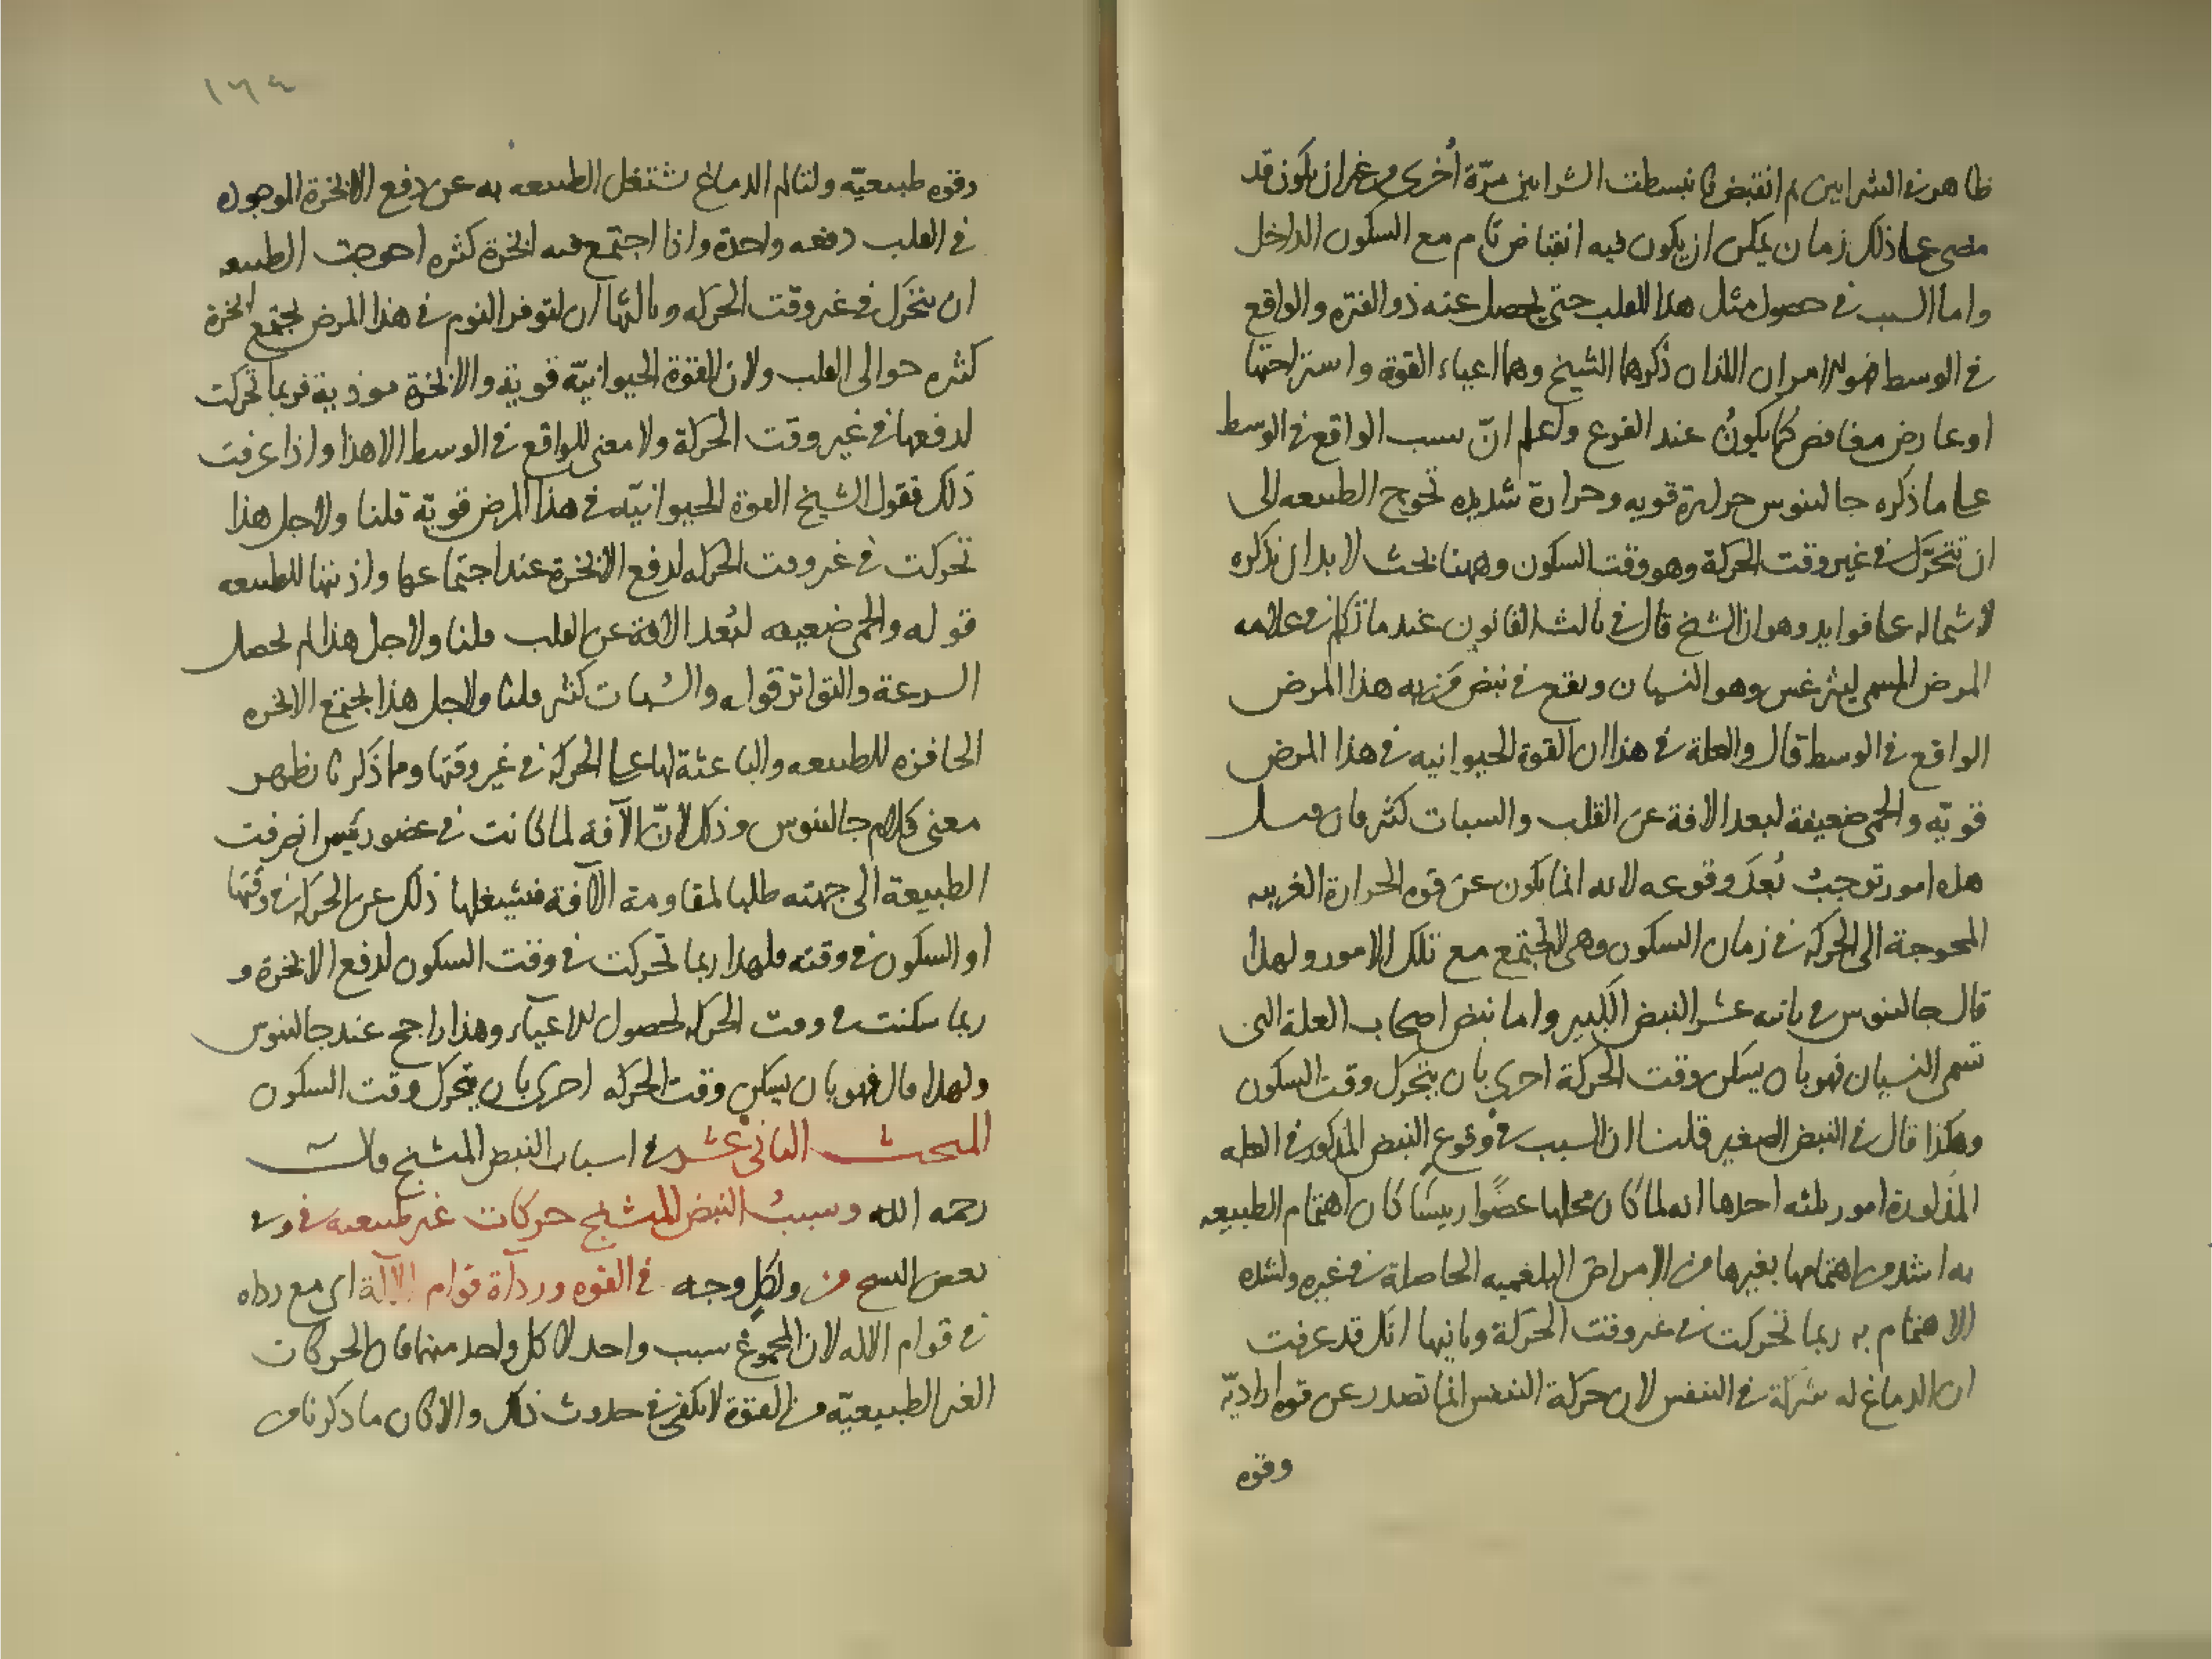 ظاهر في الشرايين ثم انقبض فانبسطت الشرايين مرّة أخرى من غير ان يكون قد
مضى على ذلك زمان يمكن ان يكون فيه انقباض تام مع السكون الداخل
واما السبب في حصول مثل هذا للقلب حتى يحصل عنه ذو الفترة والواقع
في الوسط فهو امران اللذان ذكرهما الشيخ وهما اعياء القوة واستراحتها
او عارض مغافص كما يكون عند الفزع واعلم انّ سبب الواقع في الوسط
على ما ذكره جالينوس حرارة قويه وحرارة شديده تحوج الطبيعه الى
ان تتحرّك في غير وقت الحركة وهو وقت السكون وههنا بحث لا بد ان نذكره
لاشتماله على فوايد وهو ان الشيخ قال في ثالث القانون عند ما تكلم في علامه
المرض المسمى ليثرغس وهو النسيان ويقع في نبض من به هذا المرض
الواقع في الوسط قال والعلة في هذا ان القوة الحيوانيه في هذا المرض
قويّه والحمى ضعيفة لبعد الافة عن القلب والسبات كثير فان قيل
هذه امور توجب بُعدَ وقوعه لانه انما يكون عن قوه الحرارة الغريبه
المحوجة الى الحركه في زمان السكون وهي لا تجتمع مع تلك الامور ولهذا
قال جالينوس في ثانيه عشر النبض الكبير واما نبض اصحاب العلة التي
تسمى النسيان فهو بان يسكن وقت الحركة احرى بان يتحرك وقت السكون
وهكذا قال في النبض الصغير قلنا ان السبب في وقوع النبض المذكور في العله
المذكورة امور ثلثه احدها انه لما كان محلها عضوًا رييسًا كان اهتمام الطبيعه
به اشد من اهتمامها بغيرها من الامراض البلغميه الحاصلة في غيره ولشده
الاهتمام به ربما تحركت في غير وقت الحركة وثانيها انك قد عرفت
ان الدماغ له شركة في التنفس لان حركة التنفس انما تصدر عن قوه اراديّه
وقوه
١٦٤
وقوه طبيعيّه ولتالم الدماغ تشتغل الطبيعه به عن دفع الابخرة الموجوده
في القلب دفعه واحدة واذا اجتمع فيه ابخرة كثيره احوجت الطبيعه
ان تتحرك في غير وقت الحركه وثالثها ان لتوفر النوم في هذا المرض تجتمع ابخرة
كثيره حوالى القلب ولان القوة الحيوانيّه قوية والابخرة موذية فربما تحركت
لدفعها في غير وقت الحركة ولا معنى للواقع في الوسط الا هذا واذا عرفت
ذلك فقول الشيخ القوة الحيوانيّه في هذا المرض قويّة قلنا ولاجل هذا
تحركت في غير وقت الحركه لدفع الابخرة عند اجتماعها واذيتها للطبيعه
قوله والحمى ضعيفه لبُعد الافة عن القلب قلنا ولاجل هذا لم يحصل
السرعة والتواتر قوله والسُبات كثير قلنا ولاجل هذا تجتمع الابخره
الحافزه للطبيعه والباعثة لها على الحركه في غير وقتها ومما ذكرنا يظهر
معنى كلام جالينوس وذلك لانّ الآفه لما كانت في عضو رئيس انصرفت
الطبيعة الى جهته طلبا لمقاومة الآفة فيشغلها ذلك عن الحركه في وقتها
او السكون في وقته فلهذا ربما تحركت في وقت السكون لدفع الابخرة و
ربما سكنت في وقت الحركه لحصول الاعيآء وهذا راجح عند جالينوس
ولهذا قال فهو بان يسكن وقت الحركه احرى بان يتحرك وقت السكون
المبحث الثاني عشر في اسباب النبض المتشنج قالـ
رحمه الله وسببُ النبض المتشنج حركات غير طبيعيه في وفي
بعض النسخ من ولكل وجه في القوه وردآة قوام الآلة اى مع رداه
في قوام الاله لان المجموع سبب واحد لا كل واحد منهما فان الحركات
الغير الطبيعيّه في القوة لا تكفي في حدوث ذلك والا كان ما ذكرناه